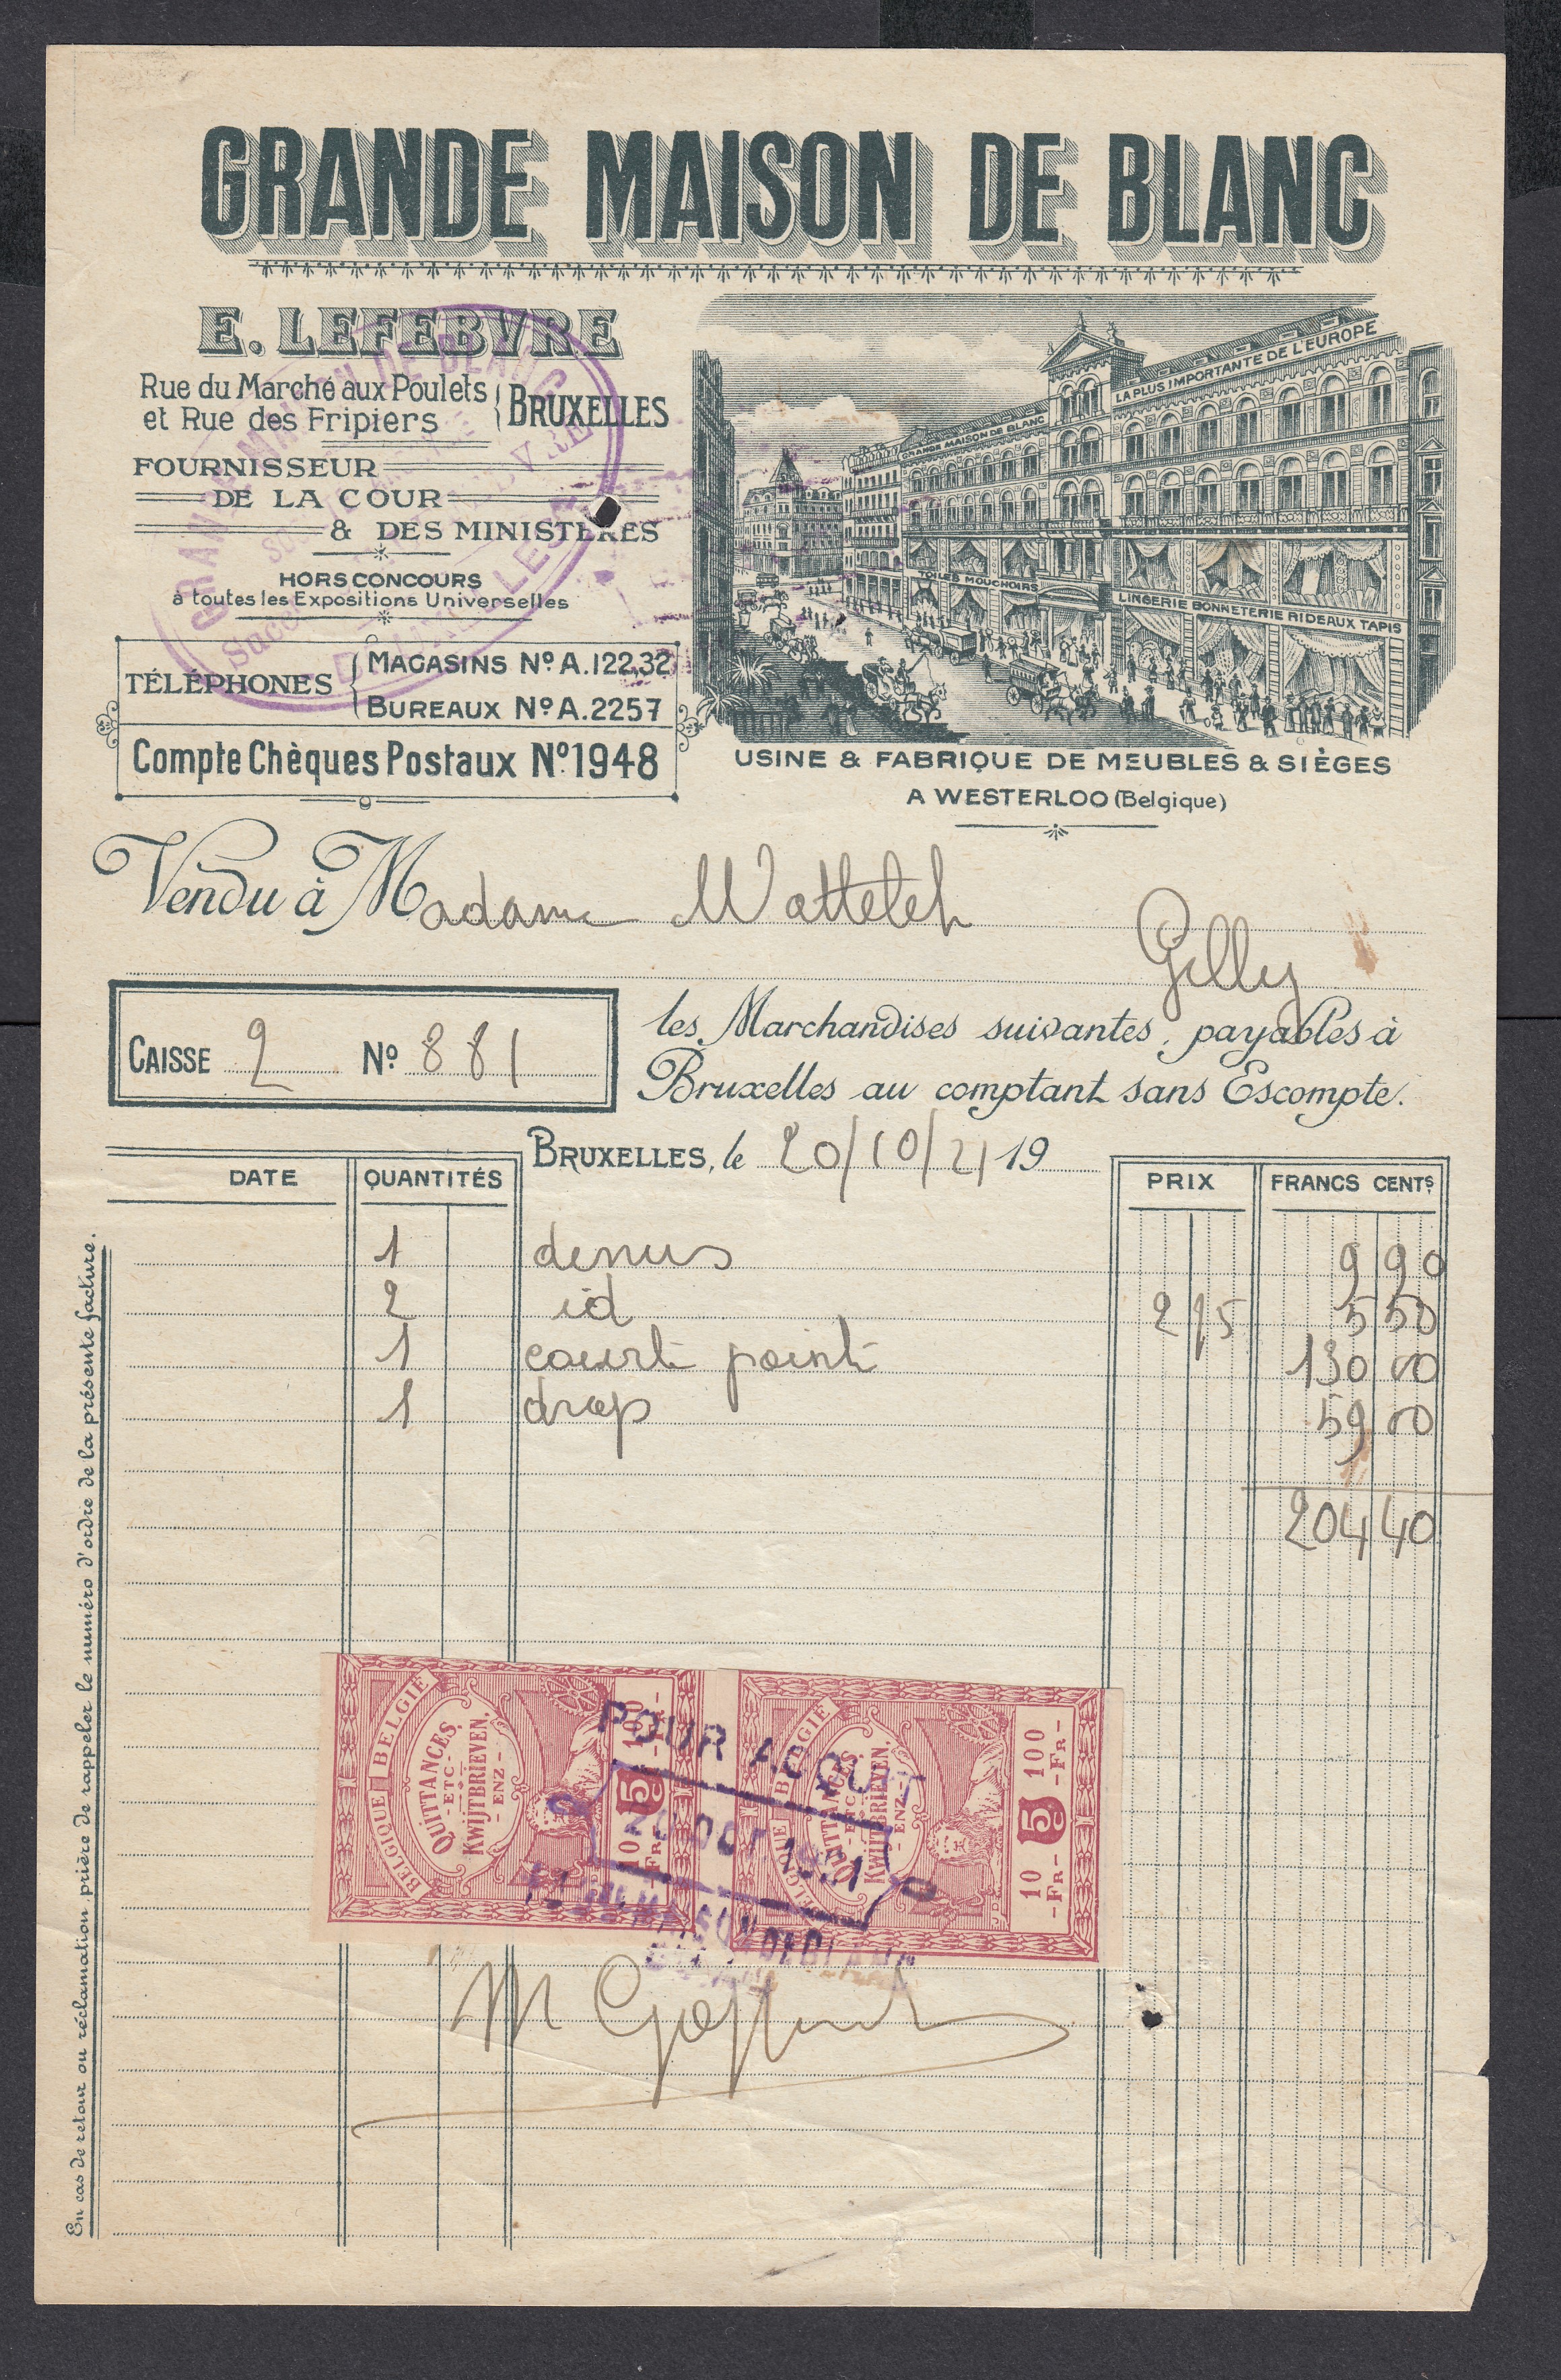 GRANDE MAISON DE BLANC
E. LEFEBVRE
Rue du Marché aux Poulets
et Rue des Fripiers
BRUXELLES
FOURNISSEUR
DE LA COUR
& DES MINISTÈRES
HORS CONCOURS
à toutes les Expositions Universelles
TÉLÉPHONES
MAGASINS Nº A.122,32
BUREAUX Nº A.2257
Compte Chèques Postaux Nº 1948
GRANDE MAISON DE BLANC
LA PLUS IMPORTANTE DE L'EUROPE
TOILES MOUCHOIRS
LINGERIE BONNETERIE RIDEAUX TAPIS
USINE & FABRIQUE DE MEUBLES & SIÈGES
A WESTERLOO (Belgique)
Vendu à Madame
Gilly
CAISSE 2 Nº 881
les Marchandises suivantes, payables à
Bruxelles au comptant sans Escompte.
BRUXELLES, le 20/10/21 19
DATE QUANTITÉS PRIX FRANCS CENTS
1 9 90
2 id 2 75 5 50
1 courte pointe 130 00
1 drap 59 00
204 40
En cas de retour ou réclamation prière de rappeler le numéro d'ordre de la présente facture.
BELGIQUE BELGIE
QUITTANCES
-ETC-
KWIJTBRIEVEN,
-ENZ-
10 5 100
-FR- -FR-
BELGIQUE BELGIE
QUITTANCES
-ETC-
KWIJTBRIEVEN,
-ENZ-
10 5 100
-FR- -FR-
POUR ACQUIT
OCT 1921
MAISON DE BLANC